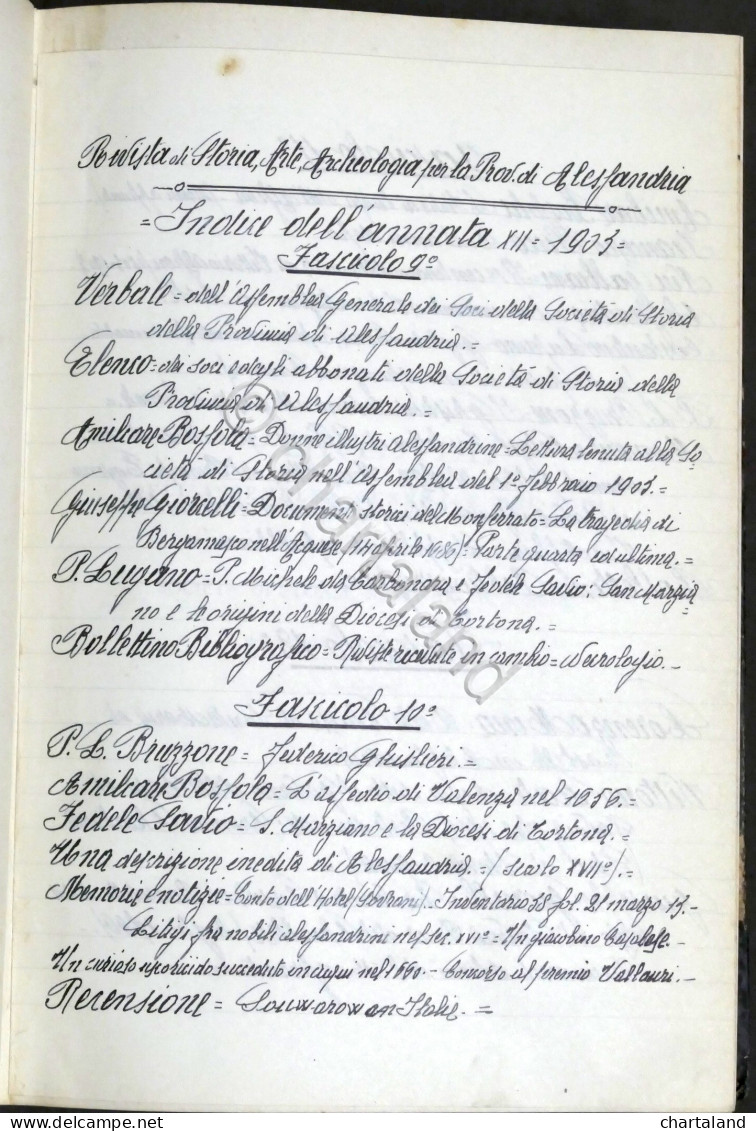 Rivista di Storia, Arte, Archeologia per la Prov. di Alessandria
= Indice dell'annata XII = 1903 =
Fascicolo 9°
Verbale = dell'Assemblea Generale dei Soci della Società di Storia
della Provincia di Alessandria. =
Elenco = dei soci e degli abbonati della Società di Storia della
Provincia di Alessandria. =
Amilcare Bossola = Donne illustri alessandrine = Lettura tenuta alla So-
cietà di Storia nell'Assemblea del 1° febbraio 1903. =
Giuseppe Giorcelli = Documenti storici del Monferrato = La tragedia di
Bergamasco nell'Acquese (14 aprile 1686) = Parte quarta ed ultima. =
P. Lugano = P. Michele da Carbonara e Fedele Savio: San Marzia
no e le origini della Diocesi di Tortona. =
Bollettino Bibliografico = Riviste ricevute in cambio = Necrologio. -
Fascicolo 10°
P. L. Bruzzone = Federico Ghislieri. =
Amilcare Bossola = L'assedio di Valenza nel 1656. =
Fedele Savio = S. Marziano e la Diocesi di Tortona. =
Una descrizione inedita di Alessandria. = (secolo XVII°). =
Memorie e notizie = Conto dell'Hotel (Sovrani). - Inventario 38 fol. 21 marzo 15. -
Litigi fra nobili alessandrini nel sec. XVI° = Un giacobino Casalese. -
Un curioso uxoricidio succeduto in Acqui nel 1660. - Concorso al premio Vallauri. -
Recensione = Souwarow en Italie. =
© chartaland
chartaland